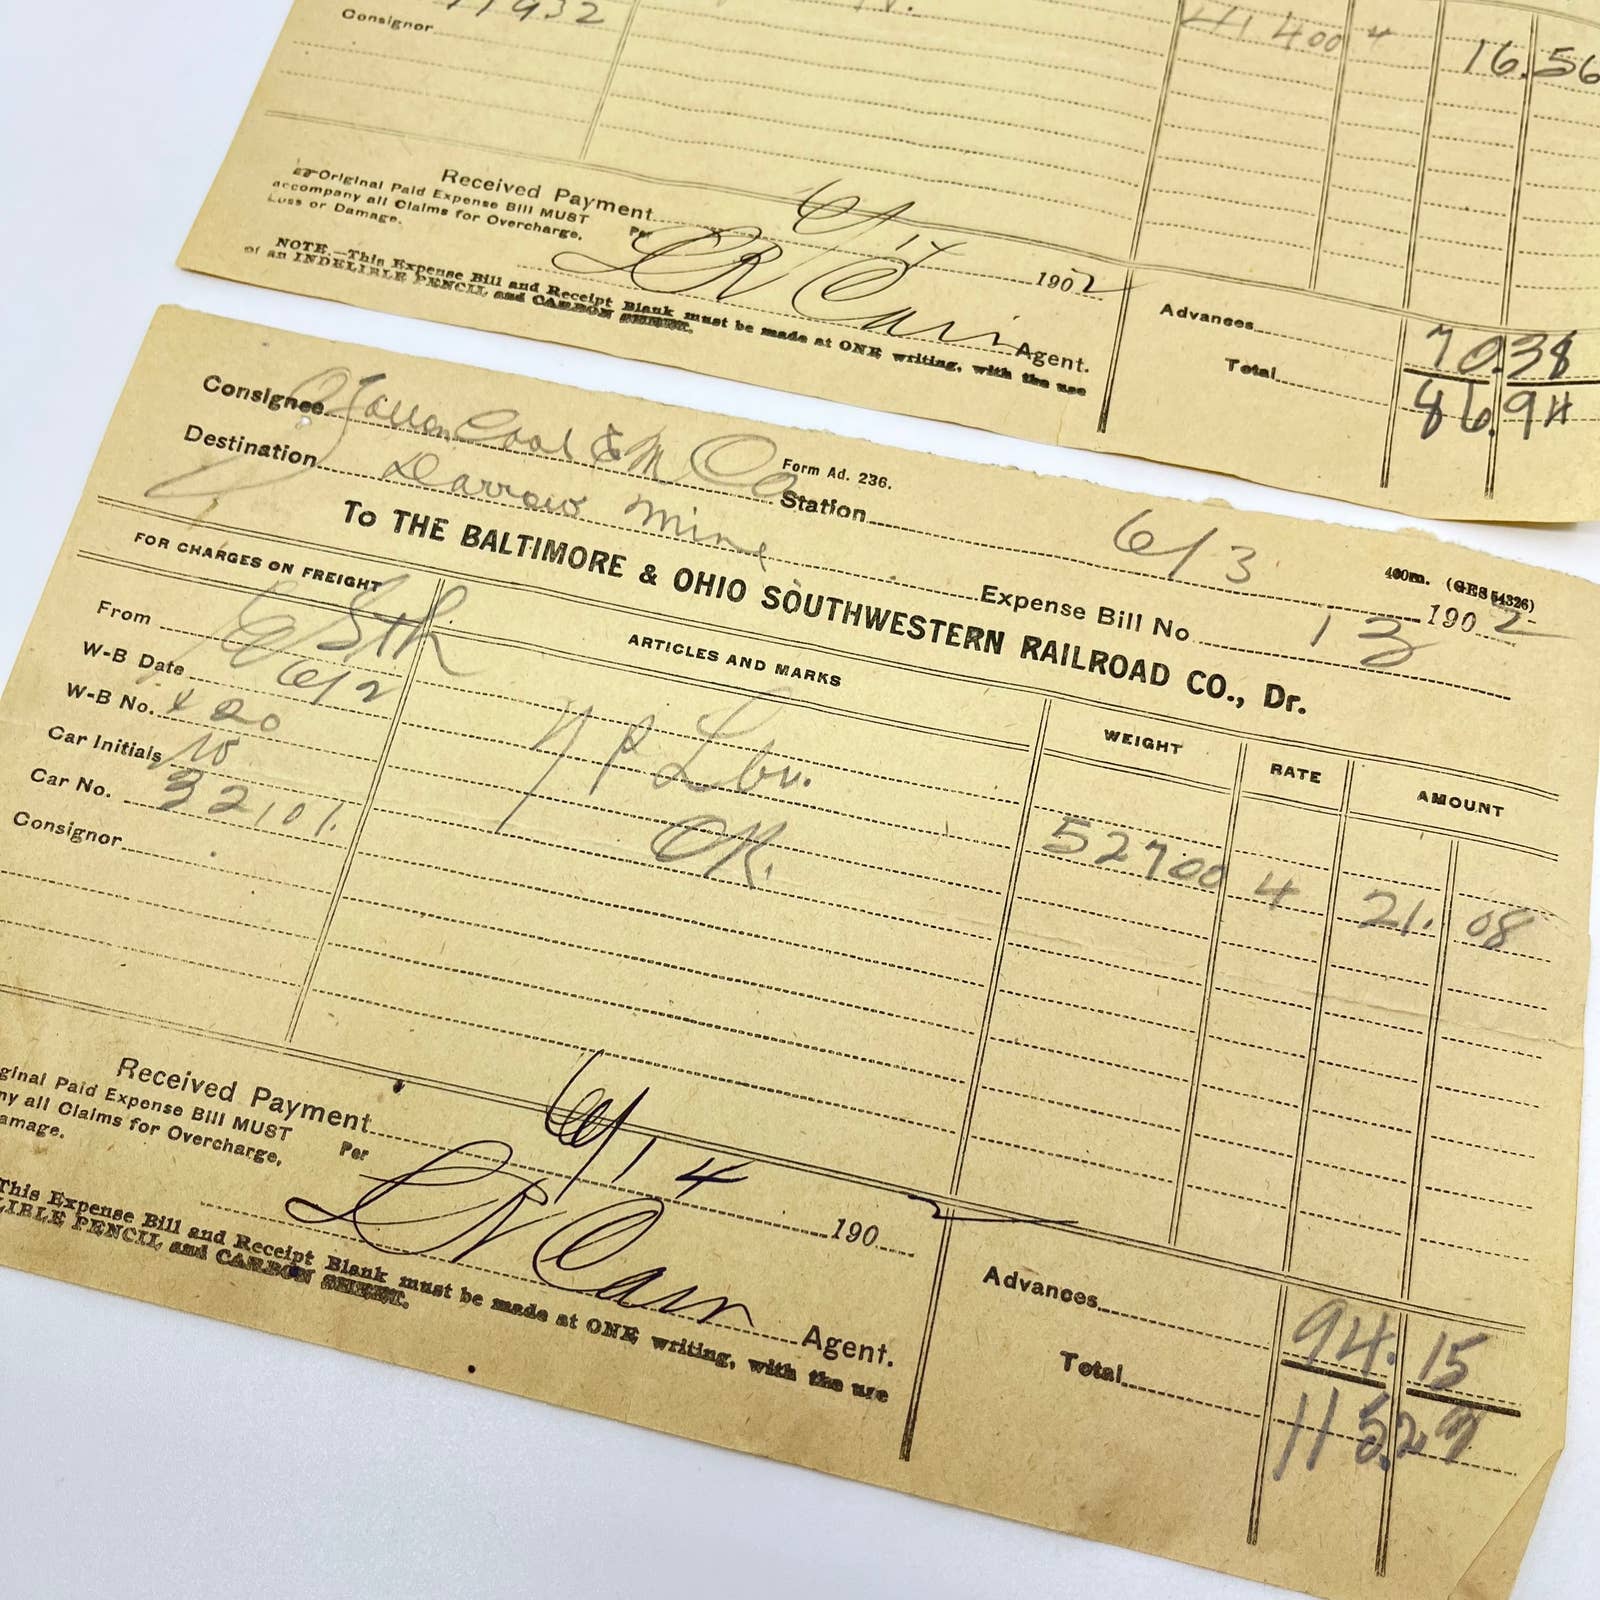 11932
Consignor
41400 4 16.56
Received Payment 6/14 1902
Original Paid Expense Bill MUST
accompany all Claims for Overcharge,
Loss or Damage.
Per L R Carr Agent.
NOTE.—This Expense Bill and Receipt Blank must be made at ONE writing, with the use
of an INDELIBLE PENCIL and CARBON SHEET.
Advances 70.38
Total 86.94
Consignee Coal & M Co
Form Ad. 236.
Destination Darrow Mine
Station 6/3 1902
400m. (GES 54326)
Expense Bill No. 13
To THE BALTIMORE & OHIO SOUTHWESTERN RAILROAD CO., Dr.
FOR CHARGES ON FREIGHT
ARTICLES AND MARKS
WEIGHT
RATE
AMOUNT
From E Sth
W-B Date 6/2
W-B No. 420
Car Initials
Car No. 32101.
Consignor
Lbr.
OR.
52700 4 21.08
Received Payment 6/14 190
ginal Paid Expense Bill MUST
ny all Claims for Overcharge,
amage.
Per L R Carr Agent.
This Expense Bill and Receipt Blank must be made at ONE writing, with the use
LIBLE PENCIL and CARBON SHEET.
Advances 94.15
Total 115.23